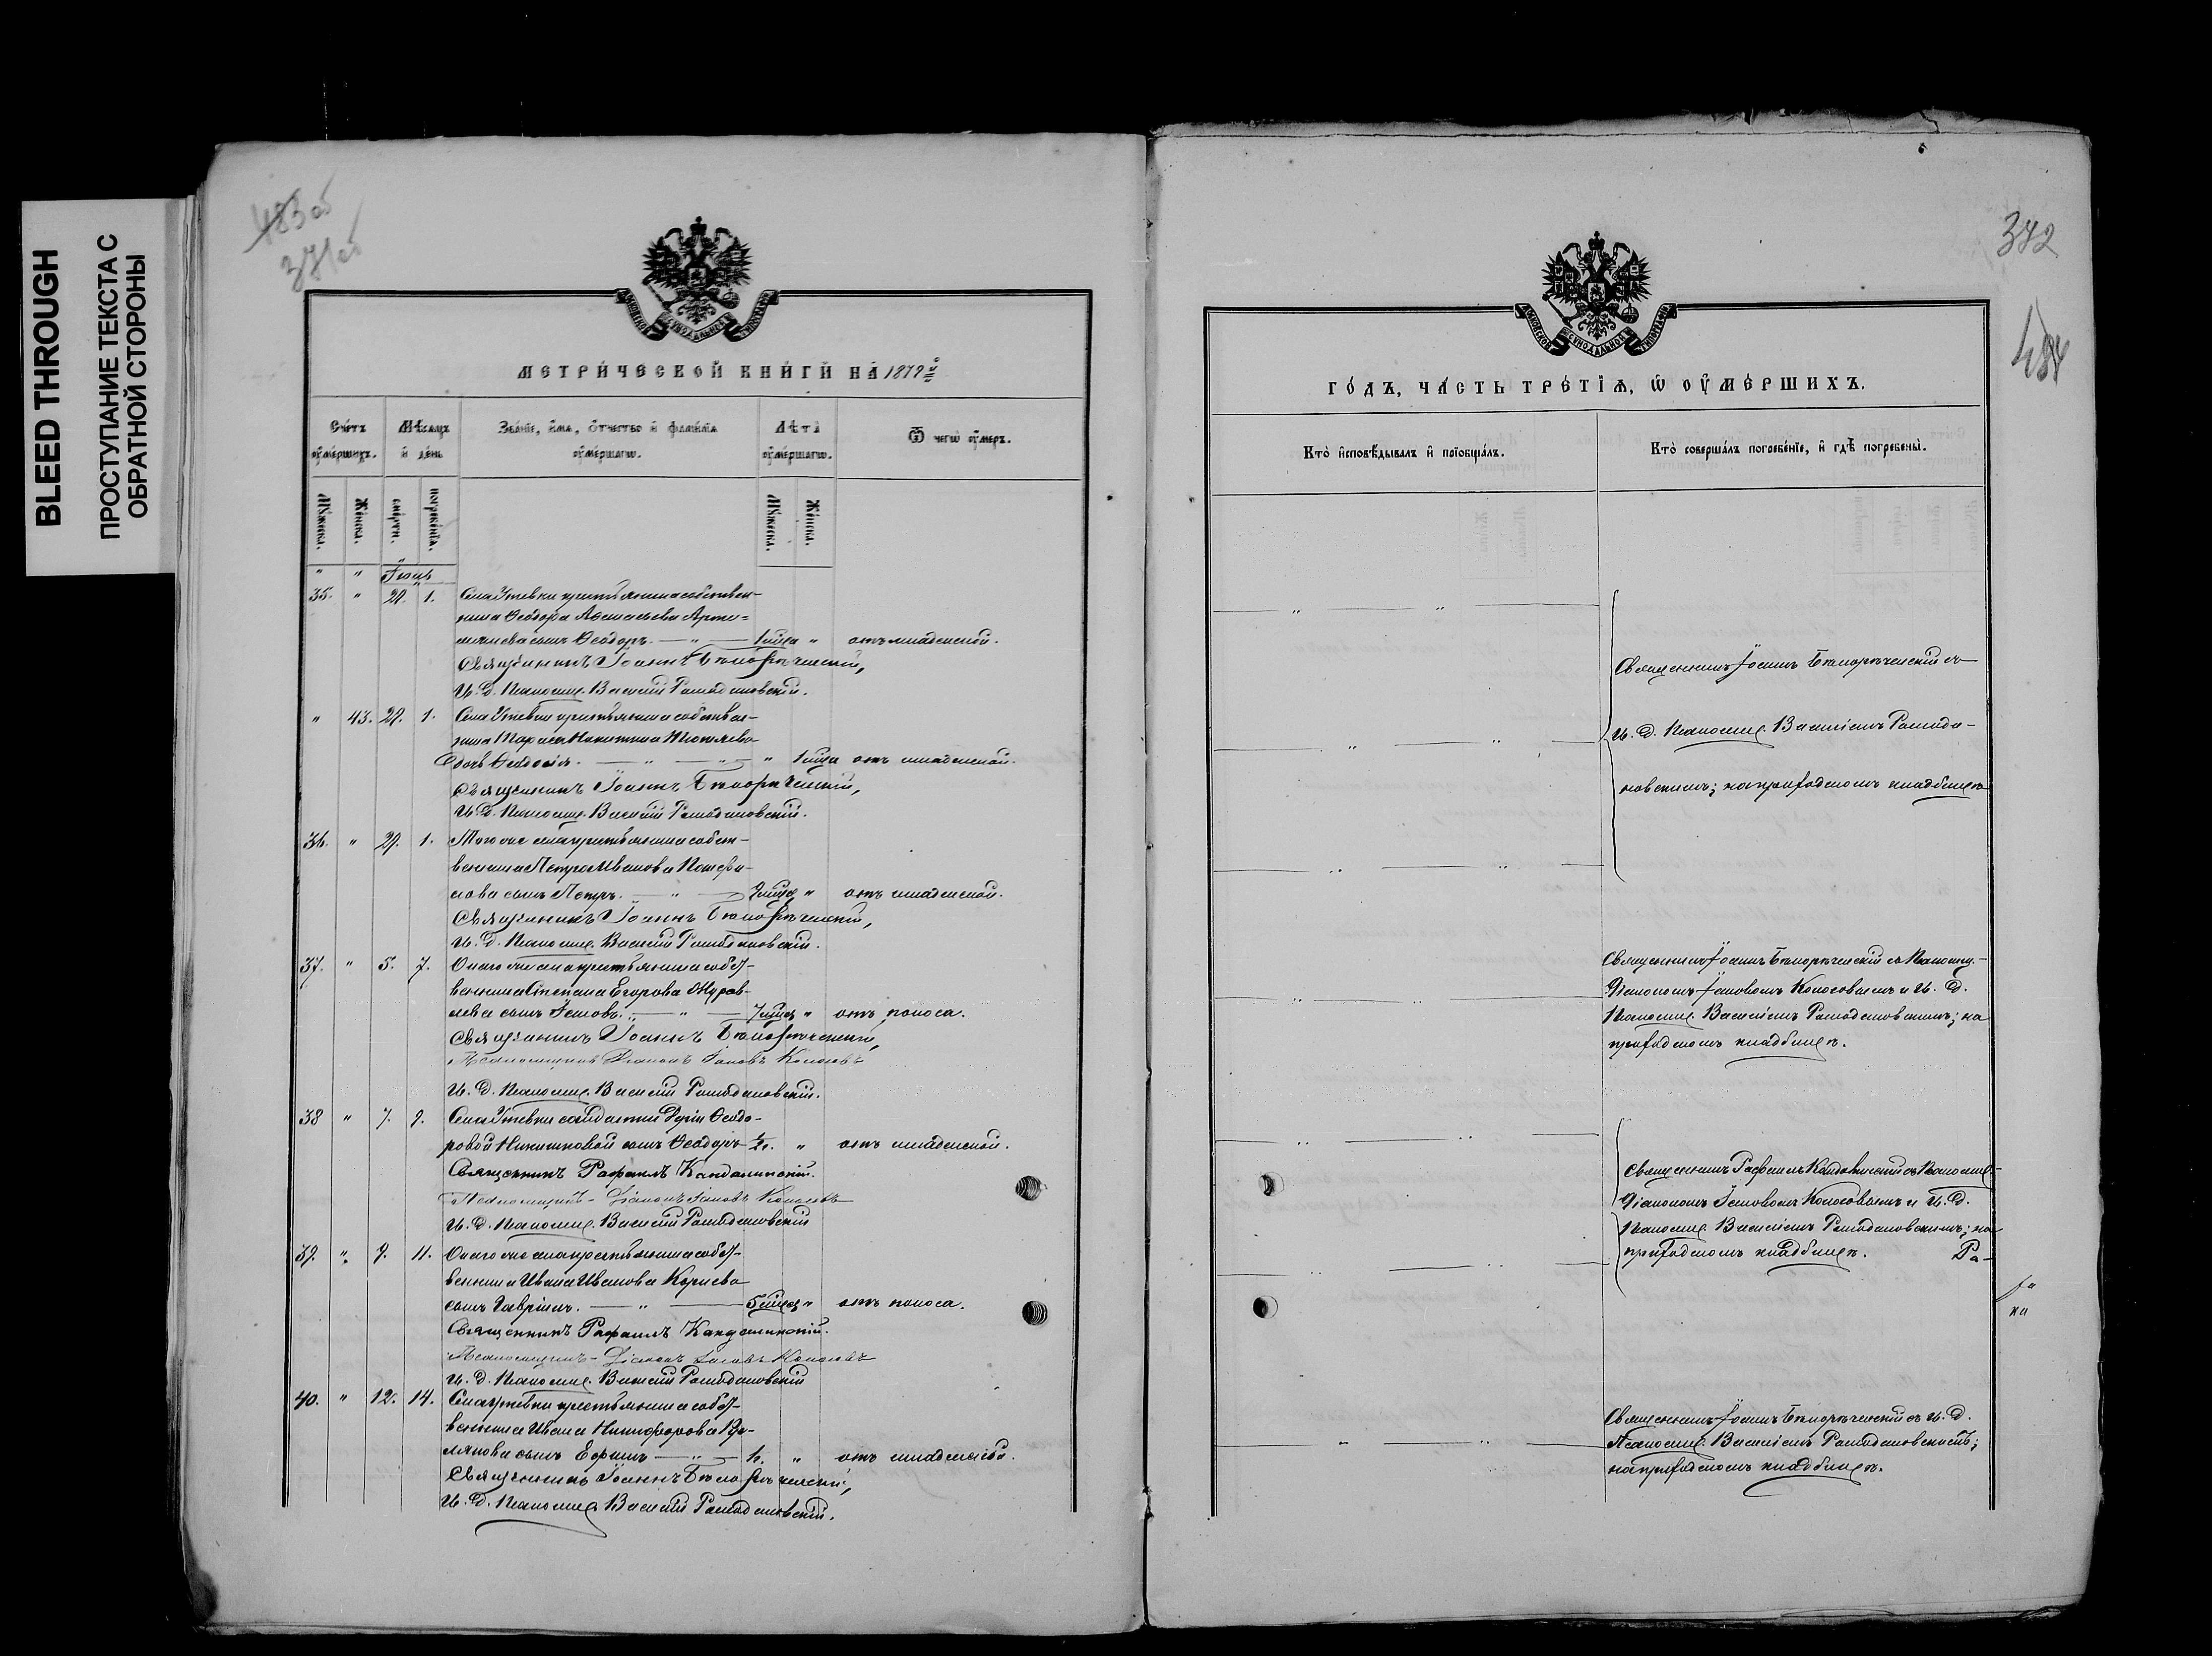 BLEED THROUGH
ПРОСТУПАНИЕ ТЕКСТА С
ОБРАТНОЙ СТОРОНЫ
483 об
371 об
МОСКОВСКОЙ СѴНОДАЛЬНОЙ ТИПОГРАФІИ
МЕТРИ́ЧЕСКОЙ КНИ́ГИ НА̀ 1879 й
Сче́тъ ᲂу҆ме́ршихъ.
Мѣ́сяцъ и҆ де́нь
Зва́нїе, и҆́мѧ, ѻ҆́тчество и҆ фамилїѧ ᲂу҆ме́ршагѡ.
Лѣ́та ᲂу҆ме́ршагѡ.
Ѿ чегѡ̀ ᲂу҆́меръ.
Мꙋ́жеска. Же́нска. сме́рти. погребе́нїѧ. Мꙋ́жеска. Же́нска.
" " Іюль
35. " 29. 1. Села Утевки крестьянина собствен-
ника Ѳеодора Аѳанасьева Арте-
сынъ Ѳеодоръ. — " — " отъ младенской.
Священникъ Іоаннъ Бѣлорѣченскій,
И. Д. Псаломщ. Василій Рамодановскій.
" 43. 29. 1. Села Утевки крестьянина собствен-
ника Никитина
дочь Ѳеодосія. — " — " — " отъ младенской.
Священникъ Іоаннъ Бѣлорѣченскій,
И. Д. Псаломщ. Василій Рамодановскій.
36. " 29. 1. Того же села крестьянина собст-
венника Петра Иванова
сынъ Петръ. — " — " отъ младенской.
Священникъ Іоаннъ Бѣлорѣченскій,
И. Д. Псаломщ. Василій Рамодановскій.
37. " 5. 7. Онаго же села крестьянина собст-
венника Степана Егорова Журав-
лева сынъ Іаковъ. — " — " отъ поноса.
Священникъ Іоаннъ Бѣлорѣченскій,
Псаломщикъ Діаконъ Іаковъ Колосовъ
И. Д. Псаломщ. Василій Рамодановскій.
38 " 7. 9. Села Утевки солдатки Ѳеодо-
ровой сынъ Ѳеодоръ " отъ младенской.
Священникъ Рафаилъ Кандалинскій.
Псаломщикъ - Діаконъ Іаковъ Колосовъ
И. Д. Псаломщ. Василій Рамодановскій
39. " 9. 11. Онаго же села крестьянина собст-
венника Ивана Иванова Корнева
сынъ Гавріилъ. — " — " отъ поноса.
Священникъ Рафаилъ Кандалинскій.
Псаломщикъ - Діаконъ Іаковъ Колосовъ
И. Д. Псаломщ. Василій Рамодановскій
40. " 12. 14. Села Утевки крестьянина собст-
венника Ивана Никифорова
сынъ Ефимъ — " — " отъ младенской.
Священникъ Іоаннъ Бѣлорѣченскій,
И. Д. Псаломщ. Василій Рамодановскій.
372
484
МОСКОВСКОЙ СѴНОДАЛЬНОЙ ТИПОГРАФІИ
ГО́ДЪ, ЧА́СТЬ ТРЕ́ТЇѦ, Ѡ҆ ОУ҆МЕ́РШИХЪ.
Кто̀ и҆сповѣ́дывалъ и҆ прїѡбща́лъ.
Кто̀ соверша́лъ погребе́нїе, и҆ гдѣ̀ погребены̀.
Священникъ Іоаннъ Бѣлорѣченскій съ
И. Д. Псаломщ. Василіемъ Рамода-
новскимъ; на приходскомъ кладбищѣ
Священникъ Іоаннъ Бѣлорѣченскій съ Псаломщ.-
Діакономъ Іаковомъ Колосовымъ и И. Д.
Псаломщ. Василіемъ Рамодановскимъ; на
приходскомъ кладбищѣ.
Священникъ Рафаилъ Кандалинскій съ Псаломщ.-
Діакономъ Іаковомъ Колосовымъ и И. Д.
Псаломщ. Василіемъ Рамодановскимъ; на
приходскомъ кладбищѣ. Ра-
Священникъ Іоаннъ Бѣлорѣченскій съ И. Д.
Псаломщ. Василіемъ Рамодановскимъ;
на приходскомъ кладбищѣ.